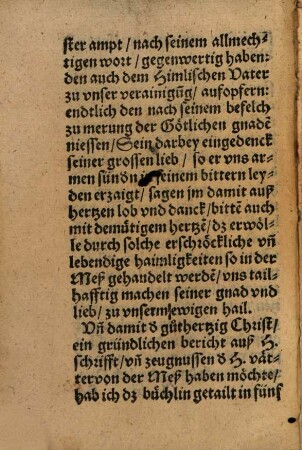 ster ampt / nach seinem allmech⸗
tigen wort / gegenwertig haben:
den auch dem Himlischen Vater
zu vnser verainigũg / aufopfern:
endtlich den nach seinem befelch
zu merung der Götlichen gnadẽ
niessen / Sein darbey eingedenck
seiner grossen lieb / so er vns ar⸗
men sündñ seinem bittern ley⸗
den erzaigt / sagen jm damit auß
hertzen lob vnd danck / bittẽ auch
mit demütigem hertzẽ / dz er wöl⸗
le durch solche erschröckliche vñ
lebendige haimligkeiten so in der
Meß gehandelt werdẽ / vns tail⸗
hafftig machen seiner gnad vnd
lieb / zu vnserm ewigen hail.
Vñ damit d güthertzig Christ /
ein gründlichen bericht auß H.
schrifft / vñ zeugnussen d H. vät⸗
ter von der Meß haben möchte /
hab ich dz büchlin getailt in fünf